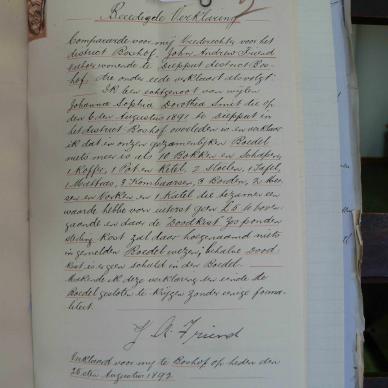 Beeedigde Verklaring
Compareerde voor mij Vrederechter voor het
district Boshof, John Andrew Friend
wonende te Diepput district Bos-
hof, die onder eede verklaart als volgt:
Ik ben echtgenoot van wijlen
Johanna Sophia Dorothea Smit die op
den 6 den Augustus 1891 te Diepput in
het district Boshof overleden is en verklaar
ik dat in onzen gezamenlijken Boedel
niets meer is als 10 Bokken en Schapen,
1 Koffer, 1 Pot en Ketel, 2 Stoelen, 1 Tafel,
1 Matras, 3 Kombaarsen, 3 Borden, 2 Mes-
sen en Vorken en 1 Katel die te zamen een
waarde hebbe van uiterst geen £5 te boven
gaande en daar de Doodkist zes ponden
sterling kost zal daar hoegenaamd niets
in gemelden Boedel wezen, behalve Dood
kist is er geen schuld in den Boedel.
Makende ik deze verklaring en einde de
Boedel gesloten te krijgen zonder eenige forma-
liteit.
J A Friend
Verklaard voor mij te Boshof op heden den
26 den Augustus 1892